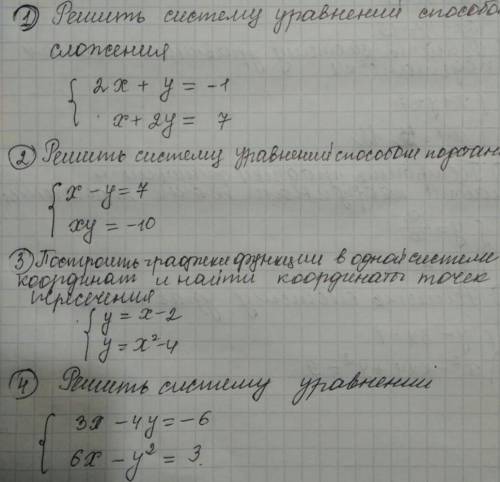 1) Решить систему уравнений способо
сложения
2x + y = -1
x + 2y = 7
2) Решить систему уравнений способом подстан
x - y = 7
xy = -10
3) Построить графики функции в одной системе
координат и найти координаты точек
пересечения
y = x - 2
y = x² - 4
4) Решить систему уравнений
3x - 4y = -6
6x - y² = 3.